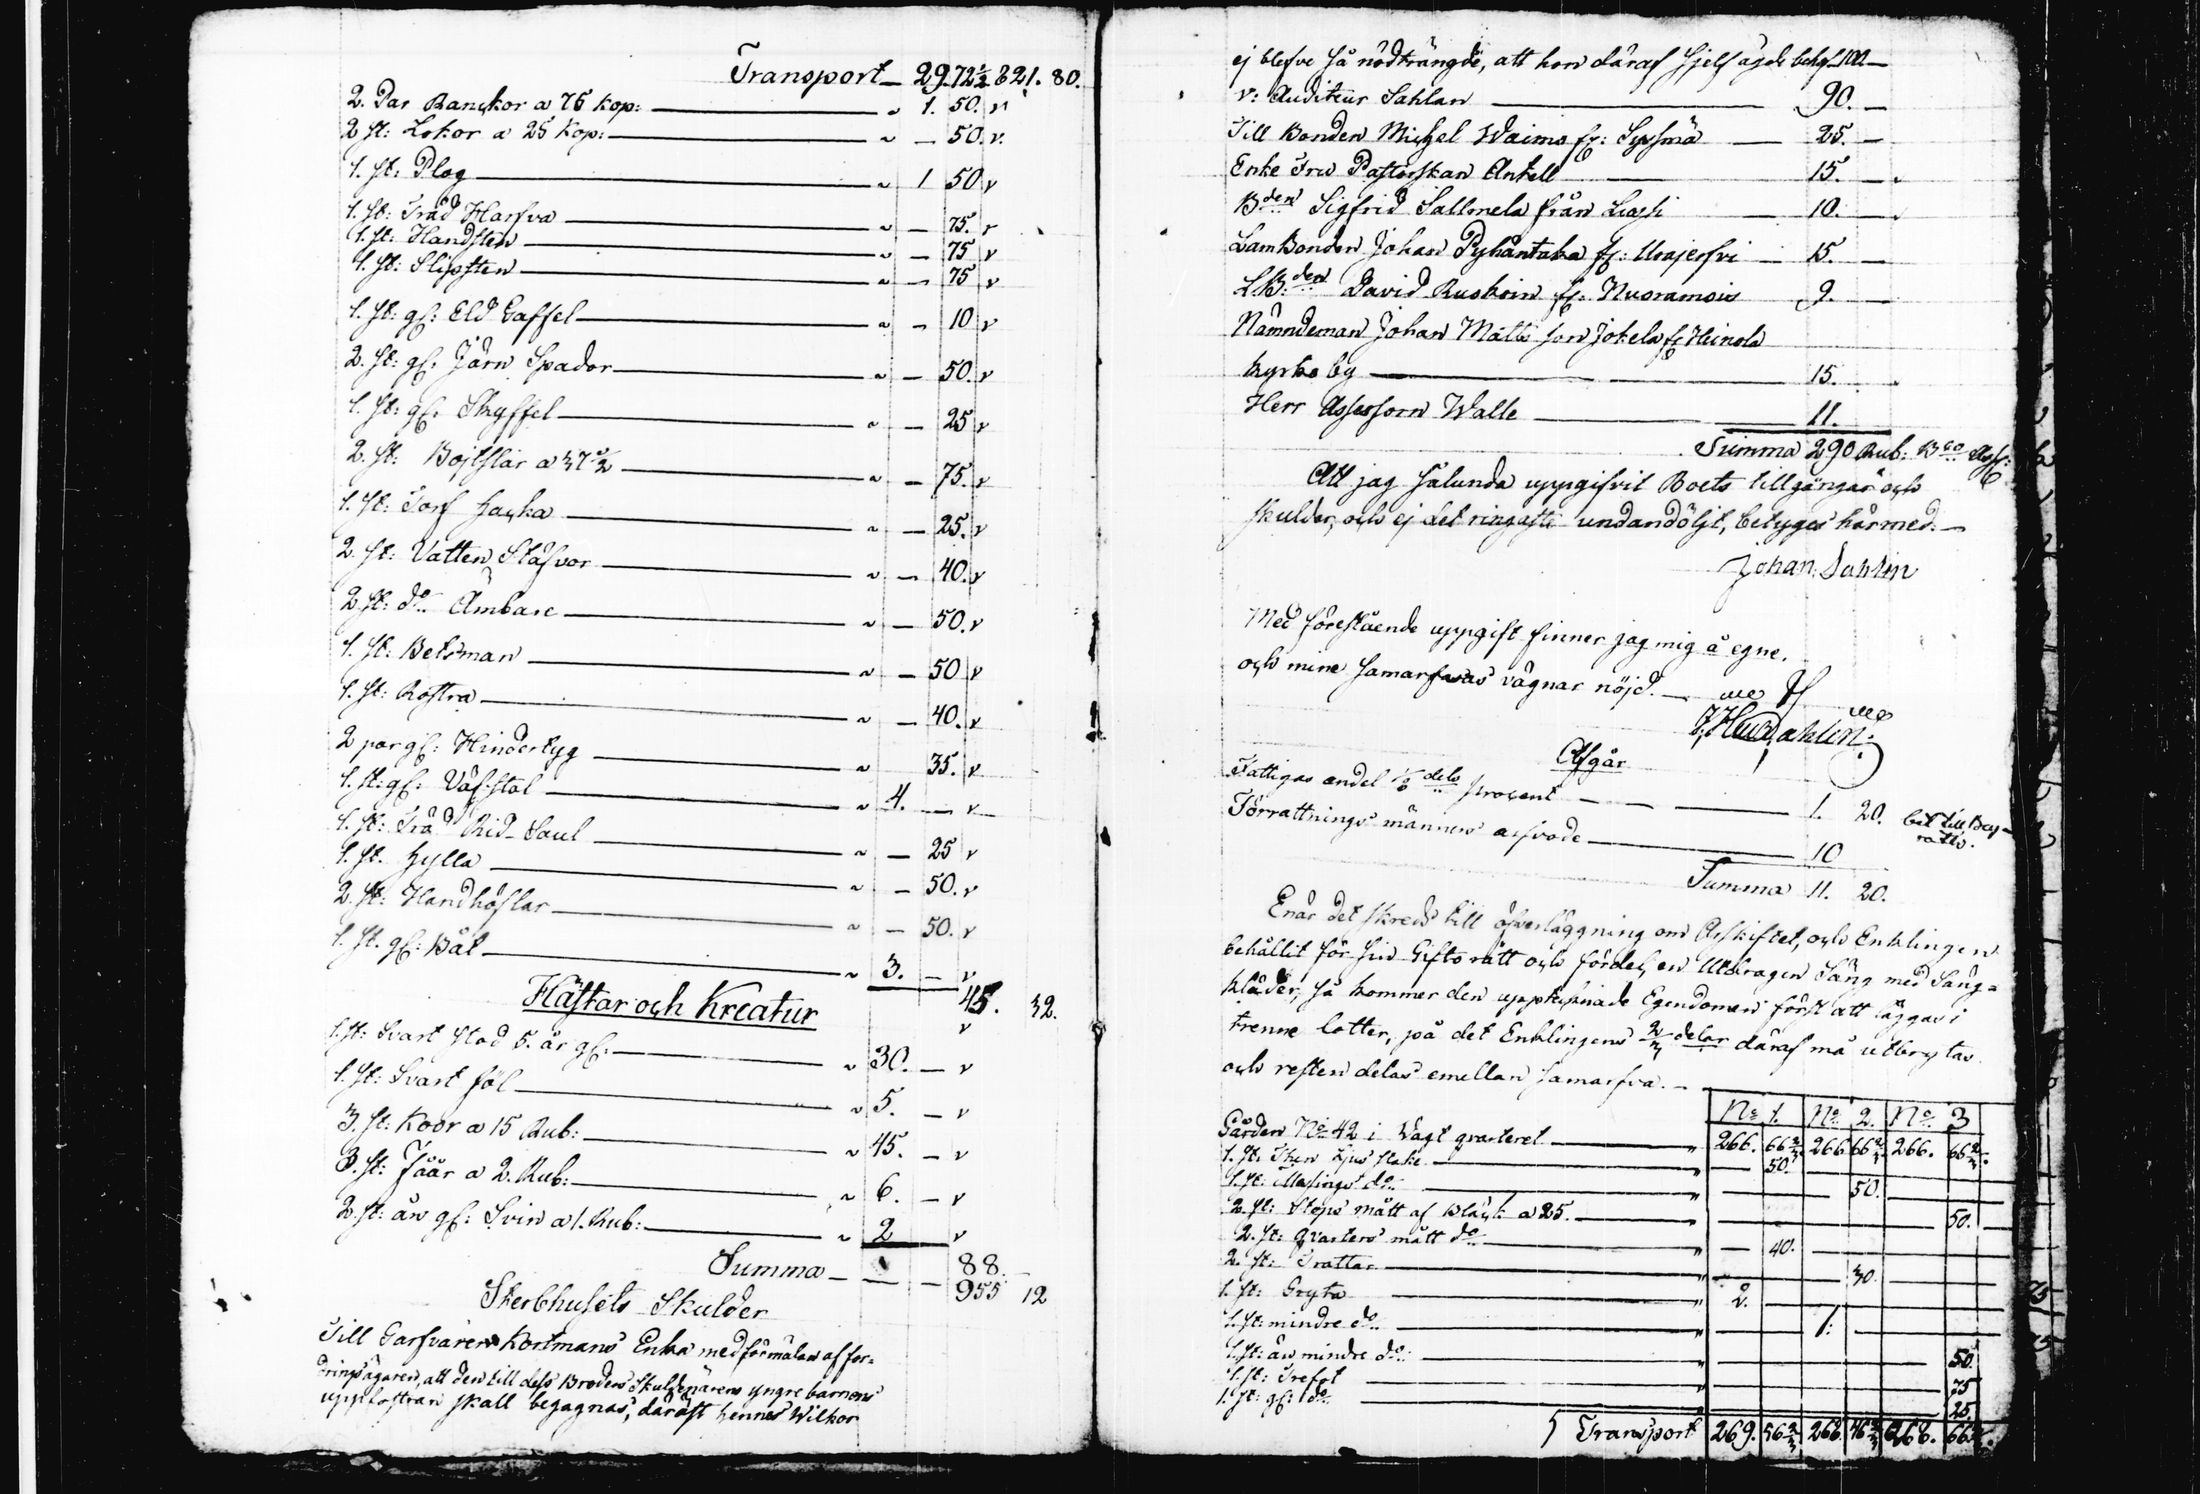 Transport — 29. 72½ 821. 80.
2. Par Ranckor a 75 Kop: — " 1. 50. v
2 st: Lokor a 25 Kop: — " — 50. v.
1. st: Plog — " 1 50 v
1. st: Träd Harfva — " — 75. v
1. st: Handsten — " — 75 v
1. st: Slipsten — " — 75 v
1. st: gl: Eld Gaffel — " — 10 v
2. st: gl: Järn Spador — " — 50. v
1. st: gl: Skyffel — " — 25 v
2. st: Bojtslar a 37½ — " — 75. v
1. st: Torf hacka — " — 25. v
2. st: Vatten Stäfvor — " — 40. v
2 st: do Ämbare — " — 50. v
1. st: Betsman — " — 50 v
1. st: Rostra — " — 40. v
2 par gl: Hindertyg — " 35. v
1. st: gl: Väf-stol — " 4. — v
1. st: Träd Rid-Saul — " — 25 v
1. st. hylla — " — 50. v
2. st: Handhöflar — " — 50. v
1. st. gl: Båt — " 3. — v
45. 32.
Hästar och Kreatur
1. st: Svart stod 5. år gl: — " 30. — v
1. st: Svart föl — " 5. — v
3. st: Koor a 15 Rub: — " 45. — v
3. st: Fåår a 2. Rub: — " 6. — v
2. st: än gl: Svin a 1. Rub: — " 2 v
Summa — — — 88.
955 12
Sterbhusets Skulder
Till Garfvaren Kortmans Enka med förmälan af for-
drings ägaren, att den till dess Broders Skuldenärens yngre barnens
uppfostran skall begagnas, däräst hennes Wilkor
ej blefve så nödträngde, att hon däraf sjelf ägde behof 100 —
v: Auditeur Sahlan — 90. —
Till Bonden Michel Waimo fr: Syssmä — 25. —
Enke Fru Pastorskan Antell — 15. —
Bden Sigfrid Sallmela från Lusti — 10. —
LamBonden Johan Pyhäntaka fr: Urajerfvi — 15. —
LB: den David Ruskoin fr: Nuoramois 9. —
Nämndeman Johan Matts son Jokela fr Heinola
Kyrko by — 15.
Herr Assessorn Walle — 11.
Summa 290 Rub: Bco Ass:
Att jag sålunda uppgifvit Boets tillgångar och
skulder, och ej det ringaste undandöljt, betygas härmed. —
Johan Sahlin
Med förestående uppgift finner jag mig å egne,
och mine samarfvas vägnar nöjd. —
Afgår
Fattigas andel ⅛ dels procent — — — 1. 20. bet till Bey-
rätts.
Förrattnings männens arfvode — 10
Summa 11. 20.
Enär det skreds till öfverläggning om Arfskiftet, och Enklingen
behållit för sin Gifto rätt och fördel, en Utdragen Säng med Säng-
kläder, så kommer den upptecknade Egendomen först att läggas i
trenne lotter, på det Enklingens 2/3 delar däraf må utbrytas
och resten delas emellan samarfva. —
No 1. No 2. No 3
Gården No 42 i Wagt qvarteret — " 266. 66⅔ 266 66⅔ 266. 66⅔
1. st: Then Ljus stake — " — 50.
1. st: Messings do — " 50.
2. st: Stops mått af bläck a 25. — 50.
2. st: qvarters mått do — " — 40.
2. st: Trattar — " 30.
1. st: Gryta — " 2.
1. st: mindre do — " 1.
1. st: än mindre do — " 50.
1. st: Trefot — " 75
1. st: gl: do — " 25.
Transport 269. 56⅔ 268. 46⅔ 268. 66⅔